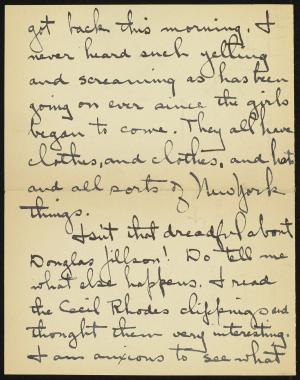 got back this morning. I
never heard such yelling
and screaming as has been
going on ever since the girls
began to come. They all have
clothes, and clothes, and hats
and all sorts of New York
things.
Isn't that dreadful about
Douglas Jillson! Do tell me
what else happens. I read
the Cecil Rhodes clippings and
thought them very interesting.
I am anxious to see what